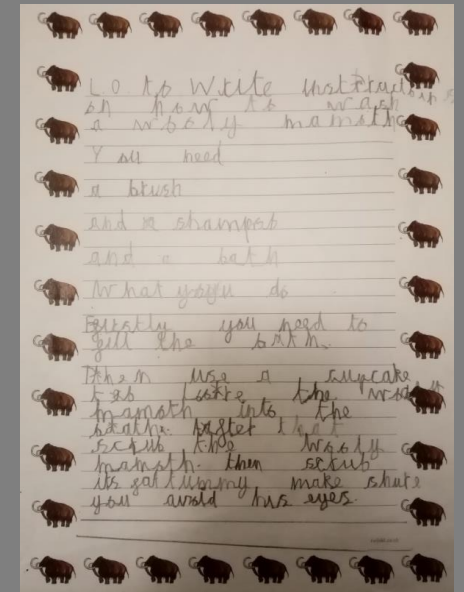 L.O. to write instructions
on how to wash
a wooly mamoth
You need
a brush
and a shampoo
and a bath
What you do
Firstly you need to
fill the bath.
Then use a cupcake
to lure the wooly
mamoth into the
bath. After that
scrub the wooly
mamoth. then scrub
its tummy make shure
you avoid his eyes.